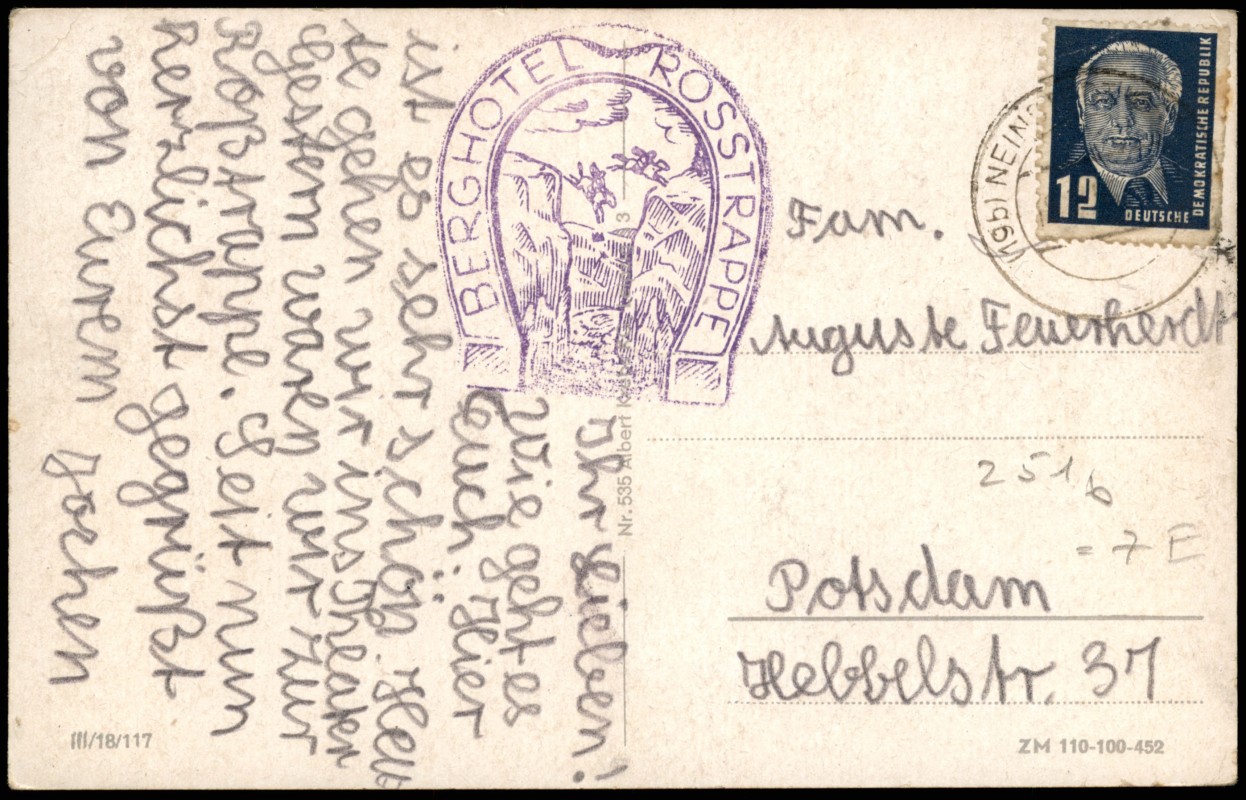 Ihr Lieben!
Wie geht es
Euch? Hier
ist es sehr schön. Heu
te gehen wir ins Theater
Gestern waren wir zur
Roßtrappe. Seit nun
herzlichst gegrüßt
von Eurem
Jochen
BERGHOTEL ROSSTRAPPE
3
Nr. 535 Albert
(19b)
12
DEUTSCHE
DEMOKRATISCHE REPUBLIK
Fam.
Auguste Feuerherdt
251b
= 7 E
Potsdam
Hebbelstr. 37
III/18/117
ZM 110-100-452